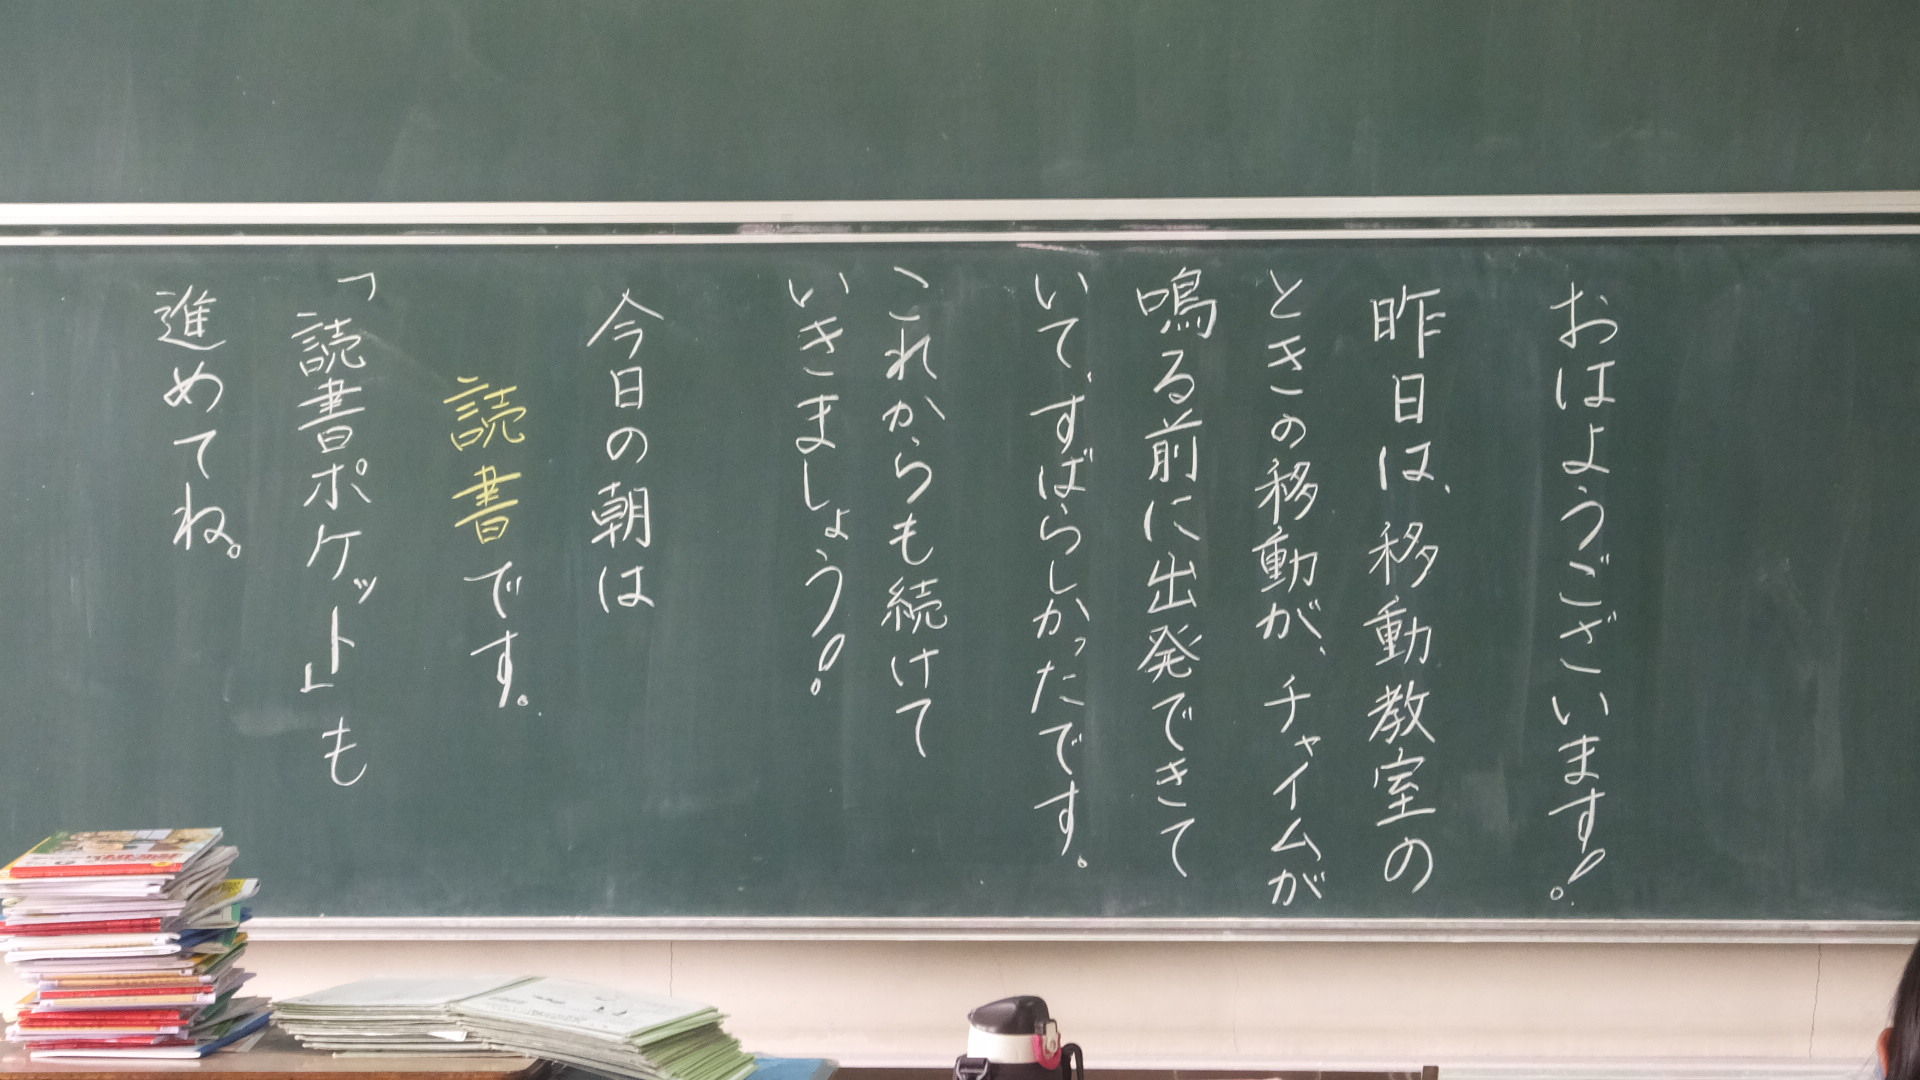 おはようございます!
昨日は、移動教室の
ときの移動が、チャイムが
鳴る前に出発できて
いて、すばらしかったです。
これからも続けて
いきましょう!
今日の朝は
読書です。
「読書ポケット」も
進めてね。